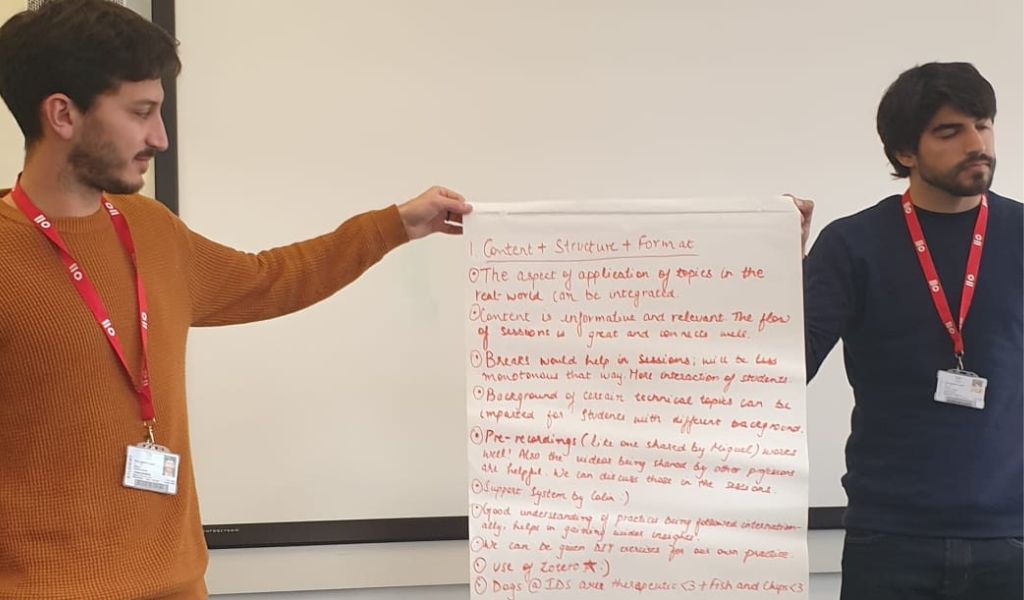 1. Content + Structure + Format
The aspect of application of topics in the
real-world can be integrated.
Content is informative and relevant. The flow
of sessions is great and connects well.
Breaks would help in sessions; will be less
monotonous that way. More interaction of students.
Background of certain technical topics can be
imparted for students with different background.
Pre-recordings (like one shared by Miguel) works
well! Also the videos being shared by other professors
are helpful. We can discuss those in the sessions.
Support System by Colin :)
Good understanding of practices being followed internation-
ally, helps in gaining wider insights!
We can be given DIY exercises for our own practice.
Use of Zotero ★ :)
Dogs @ IDS are therapeutic <3 + Fish and Chips <3